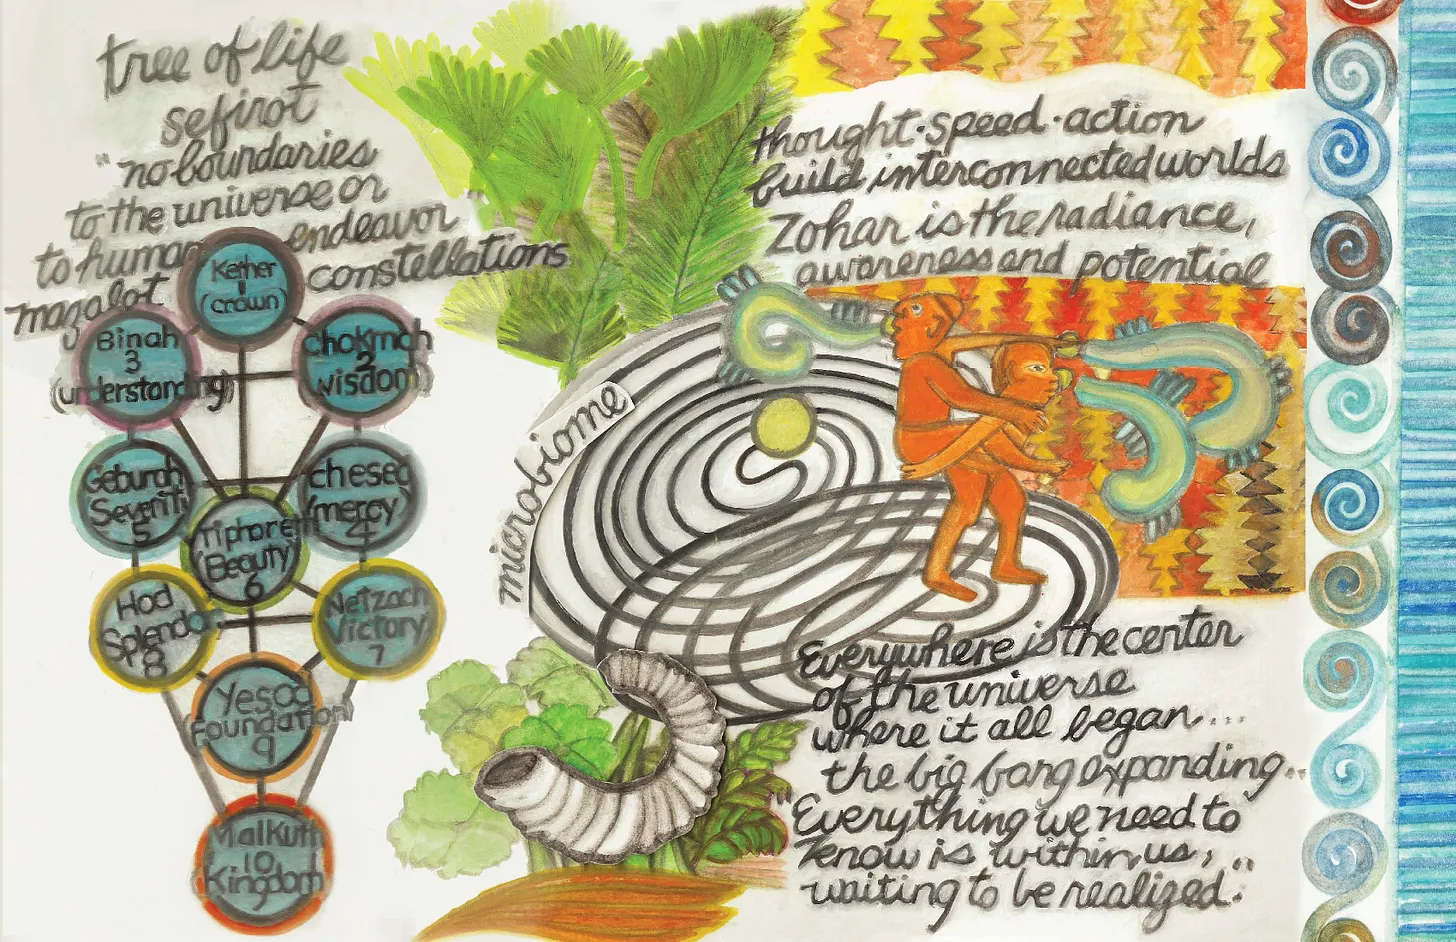 tree of life
sefirot
"no boundaries
to the universe or
to human endeavor"
mazalot constellations
Kether
1
(crown)
Binah
3
(understanding)
chokmah
2
wisdom
Geburah
Severity
5
chesed
(mercy)
4
Tiphoret
(Beauty)
6
Hod
Splendor
8
Netzach
Victory
7
Yesod
Foundation
9
Malkuth
10
Kingdom
microbiome
thought·speed·action
build interconnected worlds
Zohar is the radiance,
awareness and potential
Everywhere is the center
of the universe
where it all began....
the big bang expanding...
Everything we need to
know is within us, ..
waiting to be realized.